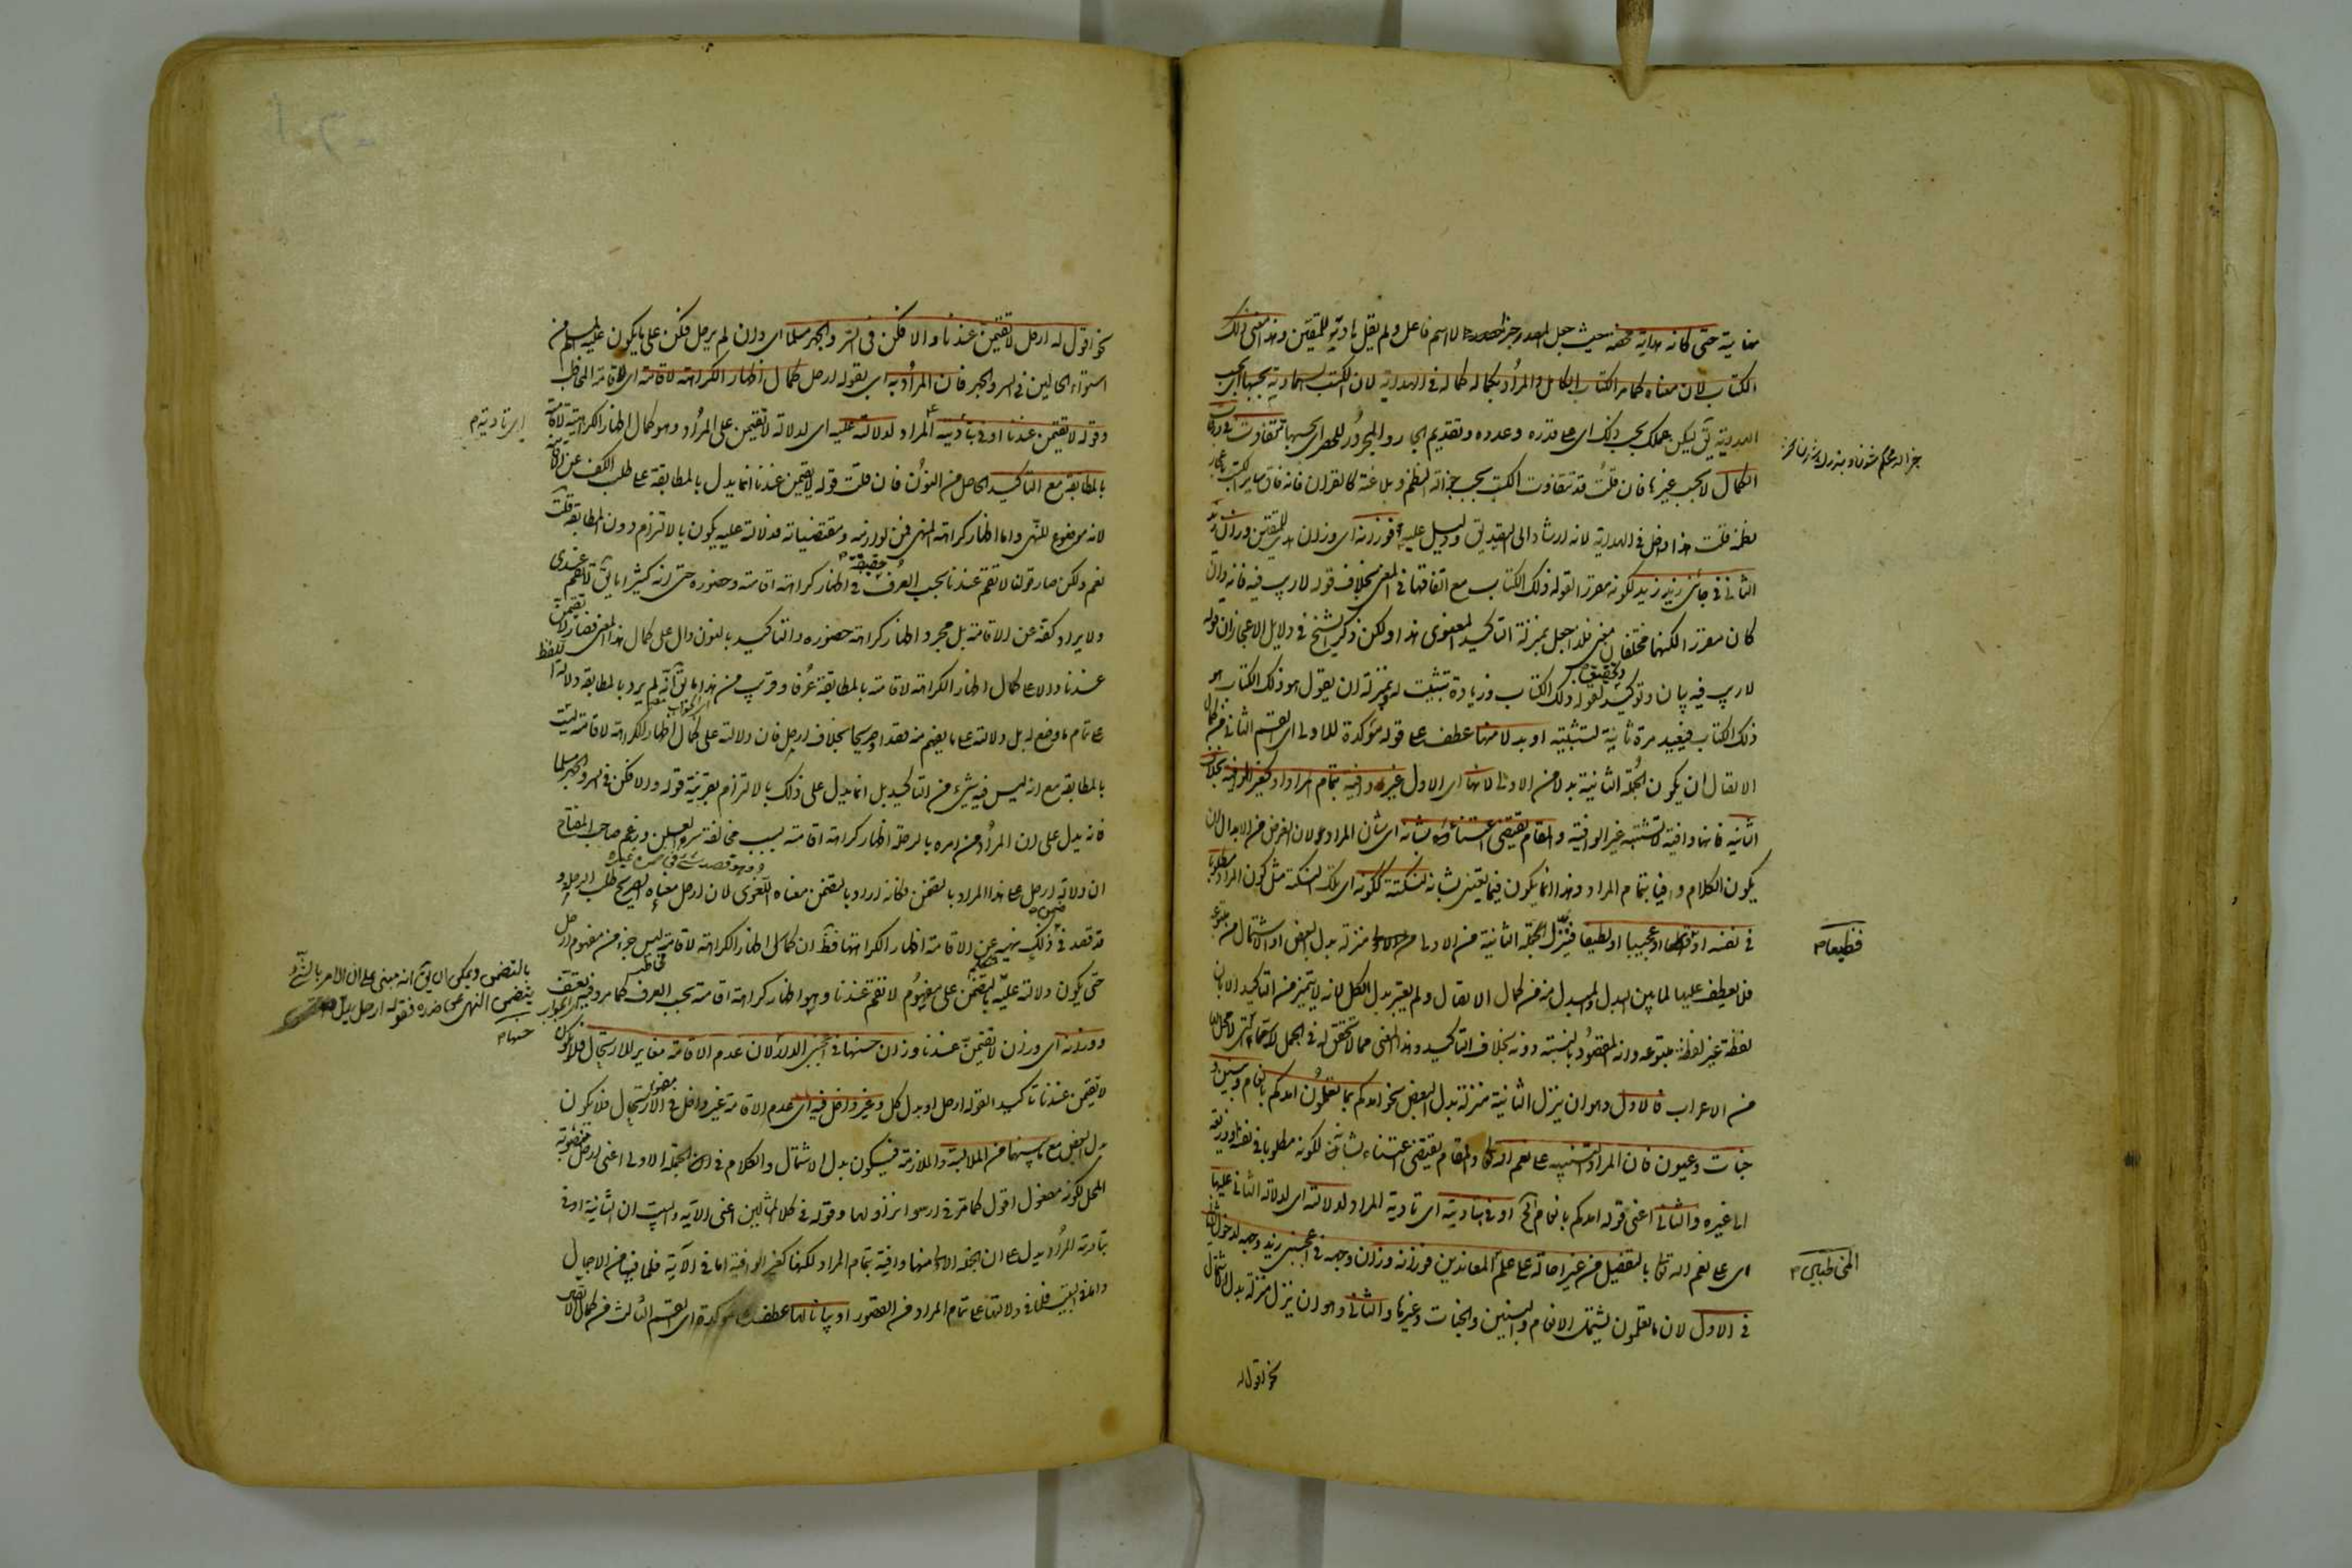 غاية حتى كانه هداية محضة حيث جعل المصدر خبرا لا اسم فاعل ولم يقل هاد للمتقين وهذا معنى ذلك
الكتاب لان معناه كما مر الكتاب الكامل والمراد بكماله كماله فى الهداية لان الكتب السماوية بحسبها اى بحسب
الهداية يق ليكن عملك بحسب ذلك اى على قدره وعدده وتقديم الجار والمجرور للحصر اى بحسبها تتفاوت فى درجات
الكمال لا بحسب غيرها فان قلت قد تتفاوت الكتب بحسب جزالة النظم وبلاغته كالقرآن فانه فاق ساير الكتب باعجاز
نظمه قلت هذا داخل فى الهداية لانه ارشاد الى التصديق ودليل عليه فوزانه اى وزان هدى للمتقين وزان زيد
الثانى فى جائنى زيد زيد لكونه مقررا لقوله ذلك الكتاب مع اتفاقهما فى المعنى بخلاف قوله لا ريب فيه فانه وان
كان مقررا لكنهما مختلفان معنى فلذا جعل بمنزلة التاكيد المعنوى هذا ولكن ذكر الشيخ فى دلايل الاعجاز ان قوله
لا ريب فيه بيان وتوكيد وتحقيق لقوله ذلك الكتاب وزيادة تثبيت له وبمنزلة ان يقول هو ذلك الكتاب هو
ذلك الكتاب فيعيده مرة ثانية لتثبيته او بدلا منها عطف على قوله مؤكدة للاولى اى القسم الثانى من كمال
الاتصال ان يكون الجملة الثانية بدلا من الاولى لانها اى الاولى غير وافية بتمام المراد او كغير الوافية بخلاف
الثانية فانها وافية لا تشتبه غير الوافية والمقام يقتضى اعتناء بشانه اى بشان المراد لان الغرض من الابدال ان
يكون الكلام وافيا بتمام المراد وهذا انما يكون فيما يعتنى بشانه لنكتة ككونه اى تلك النكتة مثل كون المراد مطلوبا
فى نفسه او فظيعا او عجيبا او لطيفا فتنزل الجملة الثانية من الاولى منزلة بدل البعض او الاشتمال من متبوعه
فلا يعطف عليها لما بين البدل والمبدل منه من كمال الاتصال ولم يعتبر بدل الكل لانه لا يتميز من التاكيد الا بان
لفظه غير لفظ متبوعه وانه المقصود بالنسبة دونه بخلاف التاكيد وهذا المعنى مما لا تحقق له فى الجمل لا سيما التى لا محل لها
من الاعراب فالاول وهو ان ينزل الثانية منزلة بدل البعض نحو امدكم بما تعلمون امدكم بانعام وبنين و
جنات وعيون فان المراد التنبيه على نعم الله تعالى والمقام يقتضى اعتناء بشانه لكونه مطلوبا فى نفسه او ذريعة
الى غيره والثانى اعنى قوله امدكم بانعام الخ اوفى بتاديته اى تادية المراد لدلالته اى لدلالة الثانى عليها
اى على نعم الله تعالى بالتفصيل من غير احالة على علم المعاندين فوزانه وزان وجهه فى اعجبنى زيد وجهه لدخول الثانى
فى الاول لان ما تعلمون يشتمل الانعام والبنين والجنات وغيرها والثانى وهو ان ينزل منزلة بدل الاشتمال
نحو اقول له
فظيعا م
المخاطبين م
نحو اقول له ارحل لا تقيمن عندنا والا فكن فى السر والجهر مسلما اى وان لم ترحل فكن على ما يكون عليه المسلم من
استواء الحالين فى السر والجهر فان المراد به اى بقوله ارحل كمال اظهار الكراهة لاقامته اى لاقامة المخاطب
وقوله لا تقيمن عندنا اوفى بتاديته المراد لدلالته عليه اى لدلالة لا تقيمن على المراد وهو كمال اظهار الكراهة لاقامته
بالمطابقة مع التاكيد الحاصل من النون فان قلت قوله لا تقيمن عندنا انما يدل بالمطابقة على طلب الكف عن الاقامة
لانه موضوع للنهى واما اظهار كراهة المنهى فمن لوازمه ومقتضياته فدلالته عليه يكون بالالتزام دون المطابقة قلت
نعم ولكن صار قولنا لا تقم عندنا بحسب العرف حقيقة فى اظهار كراهة اقامته وحضوره حتى انه كثيرا ما يق لا تقم عندى
ولا يراد كفه عن الاقامة بل مجرد اظهار كراهة حضوره والتاكيد بالنون دال على كمال هذا المعنى فصار لا تقيمن
عندنا دالا على كمال اظهار الكراهة لاقامته بالمطابقة عرفا وقريب من هذا ما يق انه لم يرد بالمطابقة دلالة اللفظ
على تمام ما وضع له بل دلالته على ما يفهم منه قصدا صريحا بخلاف ارحل فان دلالته على كمال اظهار الكراهة لاقامته ليست
بالمطابقة مع انه ليس فيه شيء من التاكيد بل انما يدل على ذلك بالالتزام بقرينة قوله والا فكن فى السر والجهر مسلما
فانه يدل على ان المراد من امره بالرحلة اظهار كراهة اقامته بسبب مخالفة سره العلن وزعم صاحب المفتاح
ان دلالة ارحل على هذا المراد بالتضمن وكانه اراد بالتضمن معناه اللغوى لان ارحل معناه الصريح طلب الرحلة و
قد قصد فى ضمن ذلك نهيه عن الاقامة اظهارا لكراهتها فظ ان كمال اظهار الكراهة لاقامته ليس جزء من مفهوم ارحل
حتى يكون دلالته عليه بالتضمن على مفهوم لا تقم عندنا وهو اظهار كراهة اقامته بحسب العرف كما مر وفيه تعسف
ووزانه اى وزان لا تقيمن عندنا وزان حسنها فى اعجبنى الدار حسنها لان عدم الاقامة مغاير للارتحال فلا يكون
لا تقيمن عندنا تاكيدا لقوله ارحل او بدل كل وغير داخل فيه اى عدم الاقامة غير داخل فى مفهوم الارتحال فلا يكون
بدل البعض مع ما بينهما من الملابسة والملازمة فيكون بدل الاشتمال والكلام فى ان الجملة الاولى اعنى ارحل منصوبة
المحل لكونه مفعول اقول كما مر فى ارسوا نزاولها وقوله فى كلا المثالين اعنى الآية والبيت ان الثانية اوفى
بتادية المراد يدل على ان الجملة الاولى منهما وافية بتمام المراد لكنها كغير الوافية اما فى الآية فلما فيها من الاجمال
واما فى البيت فلما فى دلالتها على تمام المراد من القصور او بيانا لها عطف على مؤكدة اى القسم الثالث من كمال الاتصال
اى تادية م
بالتضمن ويمكن ان يق انه مبنى على ان الامر بالشىء
يتضمن النهى عن ضده فقوله ارحل يدل